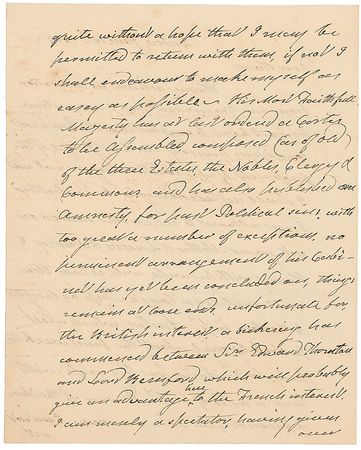 quite without a hope that I may be
permitted to return with them, if not I
shall endeavour to make myself as
easy as possible. His Most Faithfull
Majesty has at last ordered a Cortes
to be assembled composed (as of old)
of the three Estates, the Nobles, Clergy &
Commons and has also published an
Amnesty, for past Political sins, with
too great a number of exceptions, no
permanent arrangement of his Cabi-
net has yet been concluded on, things
remain at loose ends, unfortunate for
the British interest a bickering has
commenced between Sir Edward Thornton
and Lord Beresford, which will probably
give an advantage here to the French interest.
I am merely a spectator, having given
over